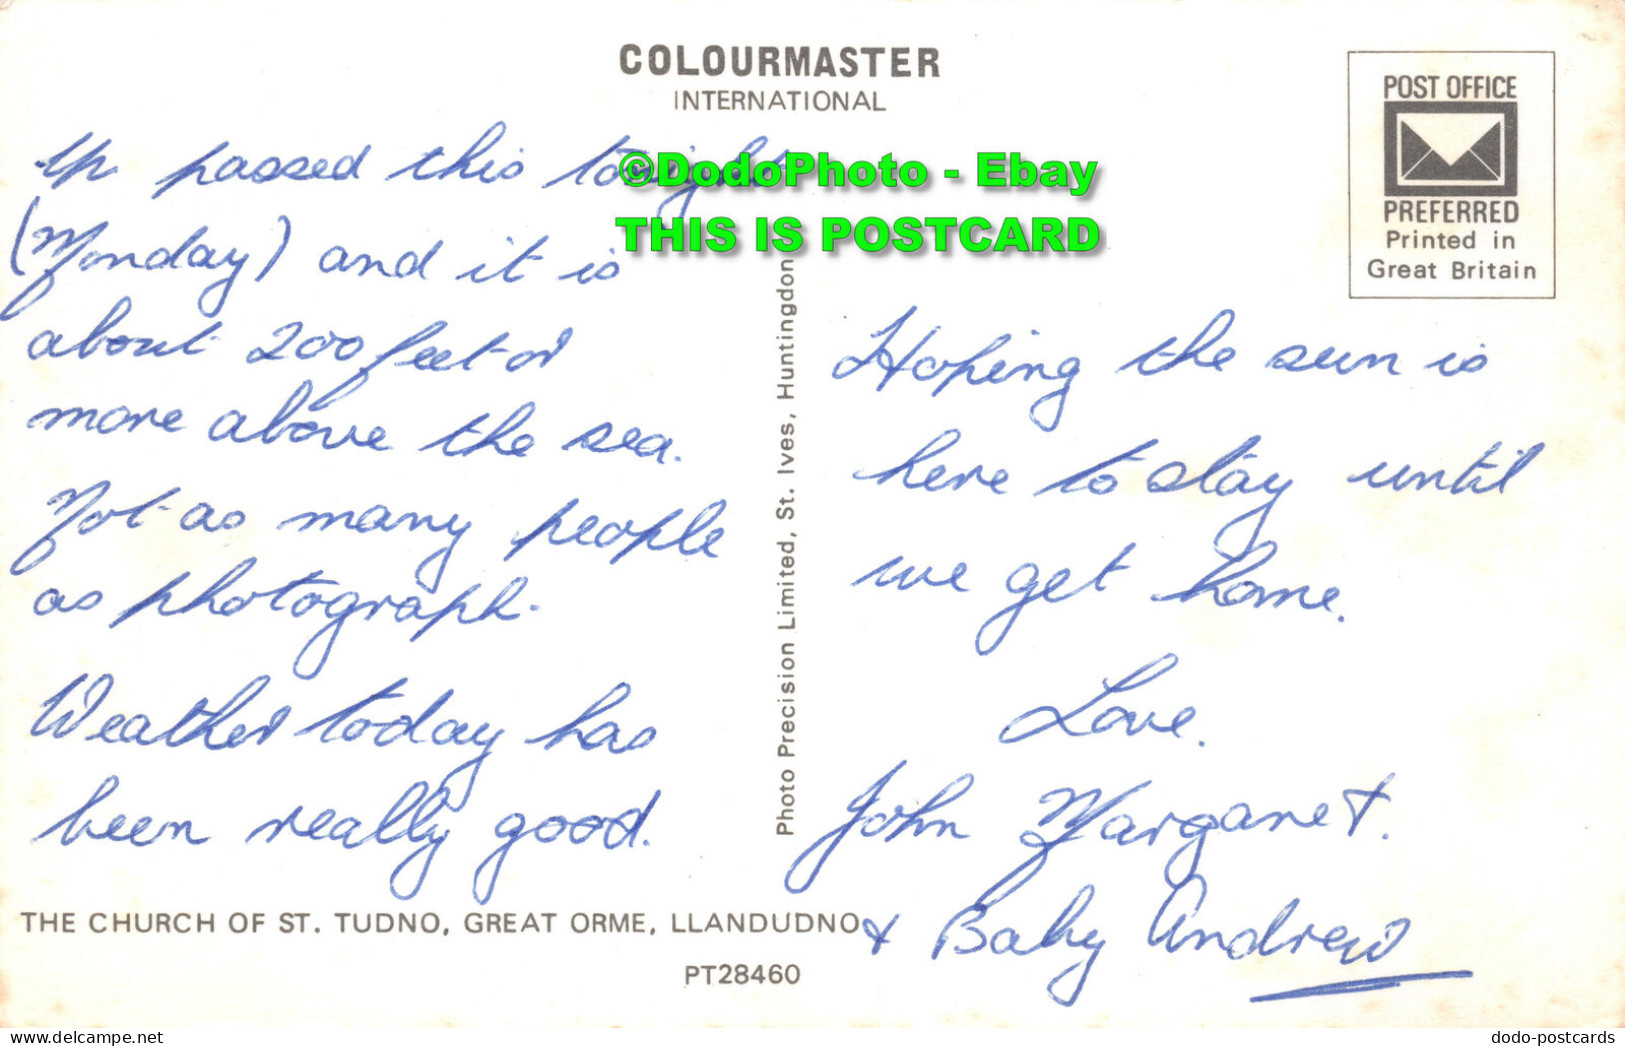 COLOURMASTER
INTERNATIONAL
POST OFFICE
PREFERRED
Printed in
Great Britain
©DodoPhoto - Ebay
THIS IS POSTCARD
Up passed this tonight
(Monday) and it is
about 200 feet or
more above the sea.
Not as many people
as photograph.
Weather today has
been really good.
Photo Precision Limited, St. Ives, Huntingdon
Hoping the sun is
here to stay until
we get home.
Love.
John Margaret.
& Baby Andrew
THE CHURCH OF ST. TUDNO, GREAT ORME, LLANDUDNO
PT28460
dodo-postcards